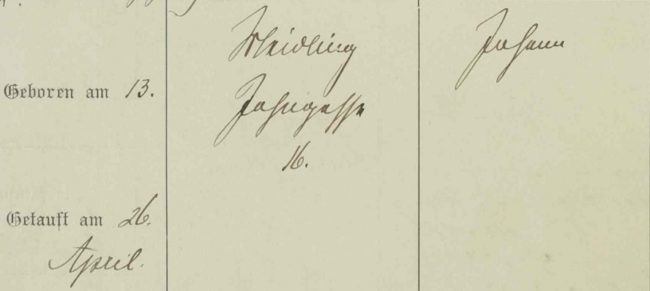 Geboren am 13.
Getauft am 26.
April.
Meidling
Jahngasse
16.
Johann